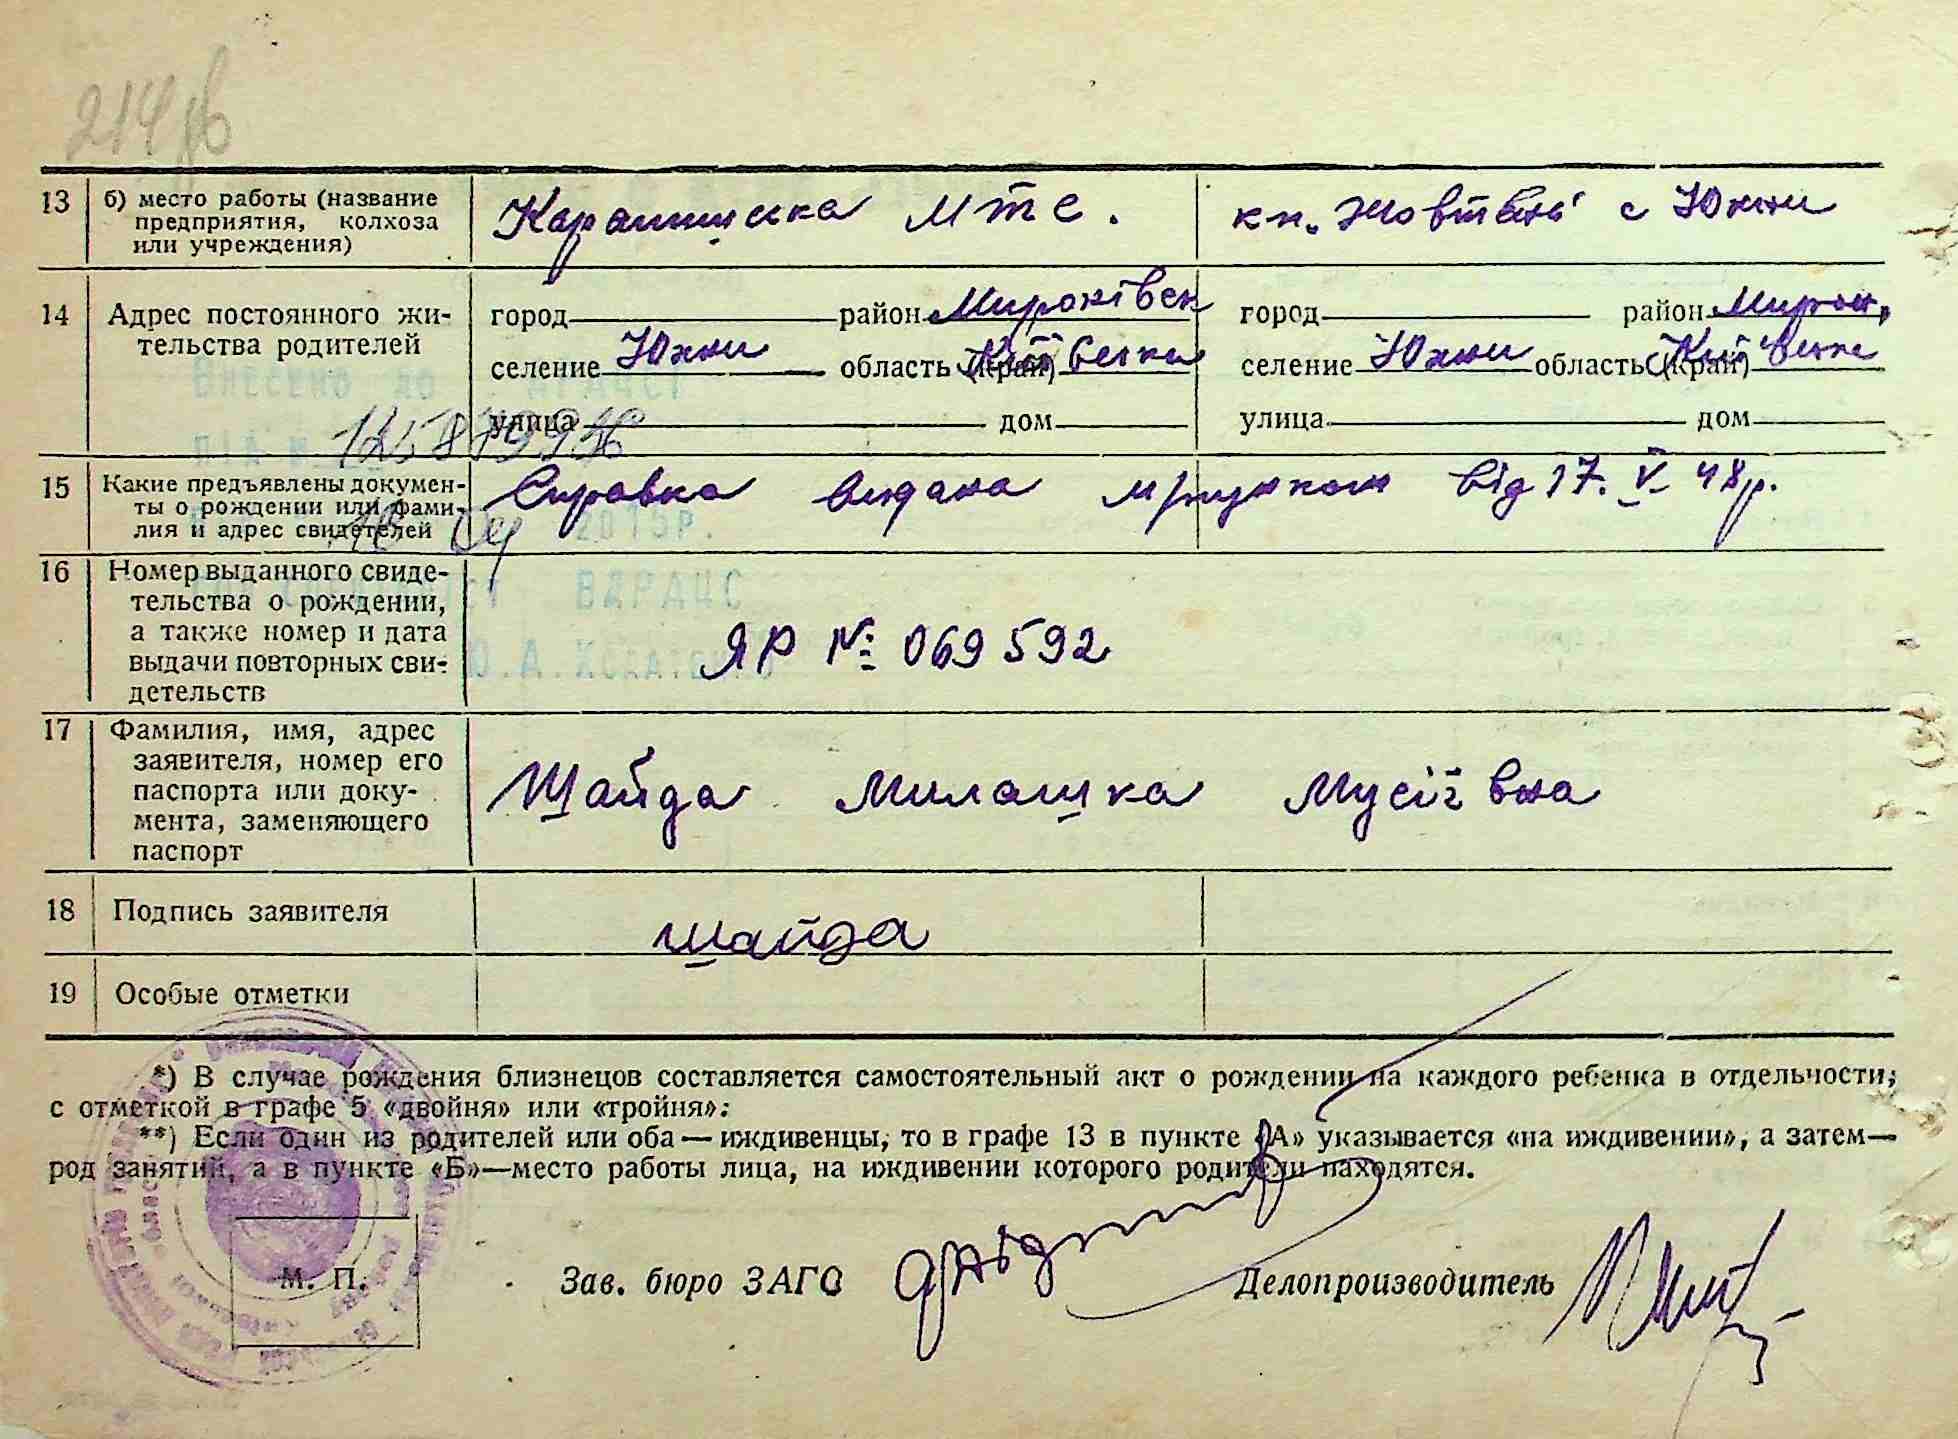 214 зв
13 б) место работы (название предприятия, колхоза или учреждения) Карапишська МТС. кп. Жовтень с Юхни
14 Адрес постоянного жительства родителей
город район Миронівськ город район Мирон,
селение Юхни область (край) Київська селение Юхни область (край) Київське
улица дом улица дом
Внесено до ДРАЦСГ
12587993
15 Какие предъявлены документы о рождении или фамилия и адрес свидетелей Справка видана від 17. V. 48р.
2015р.
ВДРАЦС
16 Номер выданного свидетельства о рождении, а также номер и дата выдачи повторных свидетельств ЯР № 069592
Ю.А.
17 Фамилия, имя, адрес заявителя, номер его паспорта или документа, заменяющего паспорт Шайда Милашка Мусіївна
18 Подпись заявителя шайда
19 Особые отметки
*) В случае рождения близнецов составляется самостоятельный акт о рождении на каждого ребенка в отдельности,
с отметкой в графе 5 «двойня» или «тройня»:
**) Если один из родителей или оба — иждивенцы, то в графе 13 в пункте «А» указывается «на иждивении», а затем—
род занятий, а в пункте «Б»—место работы лица, на иждивении которого родители находятся.
М. П. Зав. бюро ЗАГС Делопроизводитель